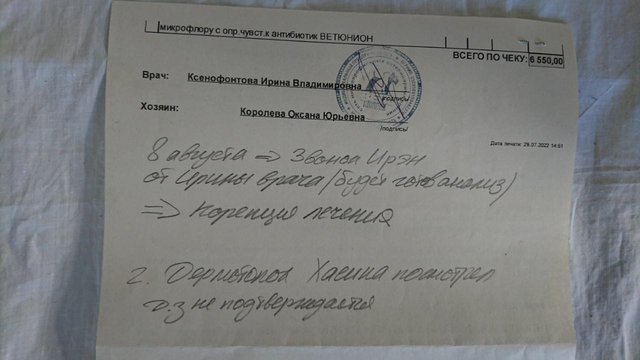 микрофлору с опр.чувст.к антибиотик ВЕТЮНИОН
ВСЕГО ПО ЧЕКУ: 6 550,00
Врач: Ксенофонтова Ирина Владимировна
/подпись/
Хозяин: Королева Оксана Юрьевна
/подпись/
Дата печати: 29.07.2022 14:51
8 августа => Звонок Ирэн
от Ирины врача (будет готов анализ)
=> Корекция лечения
2. Дерматолог посмотрел
не подтверждается